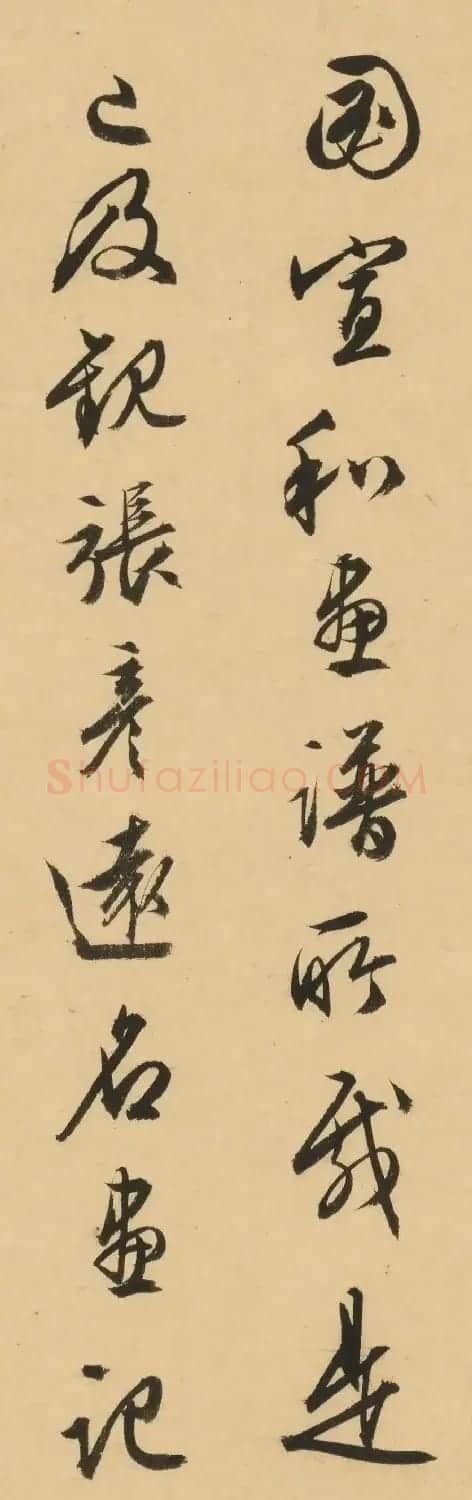 國宣和畫譜所載是
已及觀張彥遠名畫記
Shufaziliao.COM